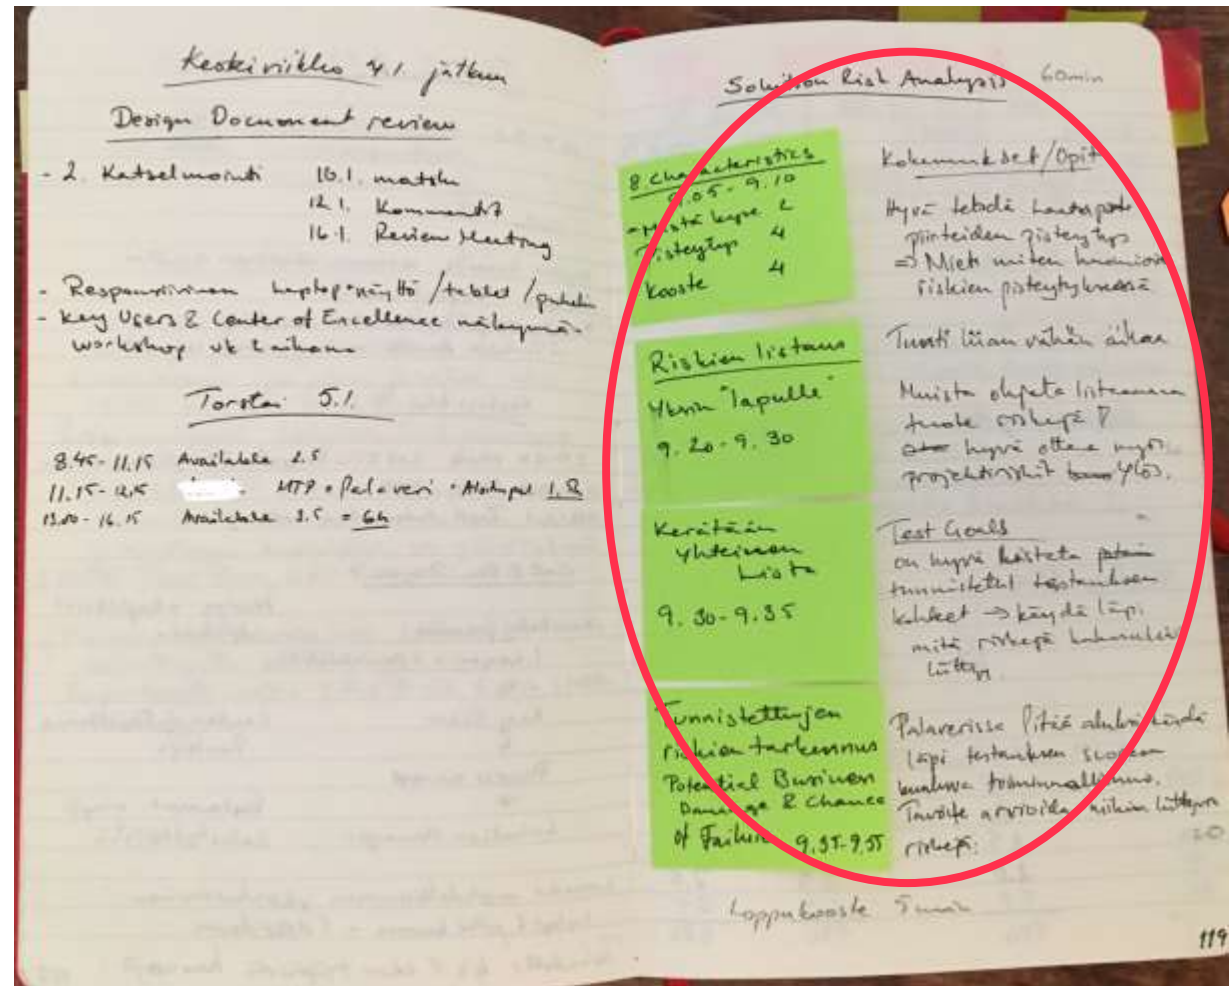 Keskiviikko 4.1. jatkuu
Design Document review
- 2. Katselmointi 10.1. matsku
12.1. Kommentit
16.1. Review Meeting
- Responsiivinen laptop näyttö / tablet / puhelin
- Key Users & Center of Excellence näkymä
workshop vk 2 aikana
Torstai 5.1.
8.45-11.15 Available 2.5
11.15-12.15 MTP Palaveri
13.00-16.15 Available 3.5 = 6h
Solution Risk Analysis 60min
8 Characteristics
9.05-9.10
- Mistä kyse 2
Pisteytys 4
Kooste 4
Riskien listaus
Yksin "lapulle"
9.20-9.30
Kerätään
yhteinen
lista
9.30-9.35
Tunnistettujen
riskien tarkennus
Potential Business
Damage & Chance
of Failure 9.35-9.55
Kokemukset/Opit
Hyvä tehdä
piirteiden pisteytys
=> Mieti miten huomioida
riskien pisteytyksessä
Tunti liian vähän aikaa
Muista ohjata listaamaan
tuote riskejä!
hyvä ottaa myös
projektiriskit ylös.
Test Goals
on hyvä listata
tunnistetut testauksen
kohteet -> käydä läpi
mitä riskejä kokonaisuuksiin
liittyy.
Palaverissa pitää aluksi käydä
läpi testauksen scopeen
kuuluva toiminnallisuus.
Tavoite arvioida niihin liittyviä
riskejä.
Loppukooste 5 min
119